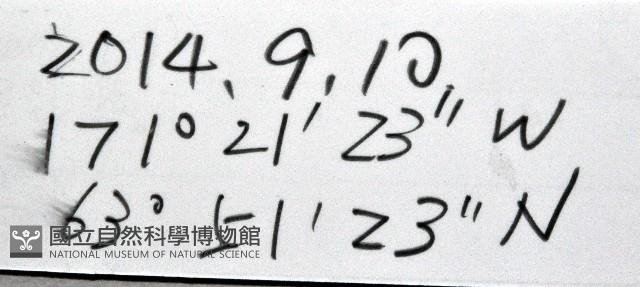 2014、9、10、
171° 21' 23" W
63° 51' 23" N
國立自然科學博物館
NATIONAL MUSEUM OF NATURAL SCIENCE